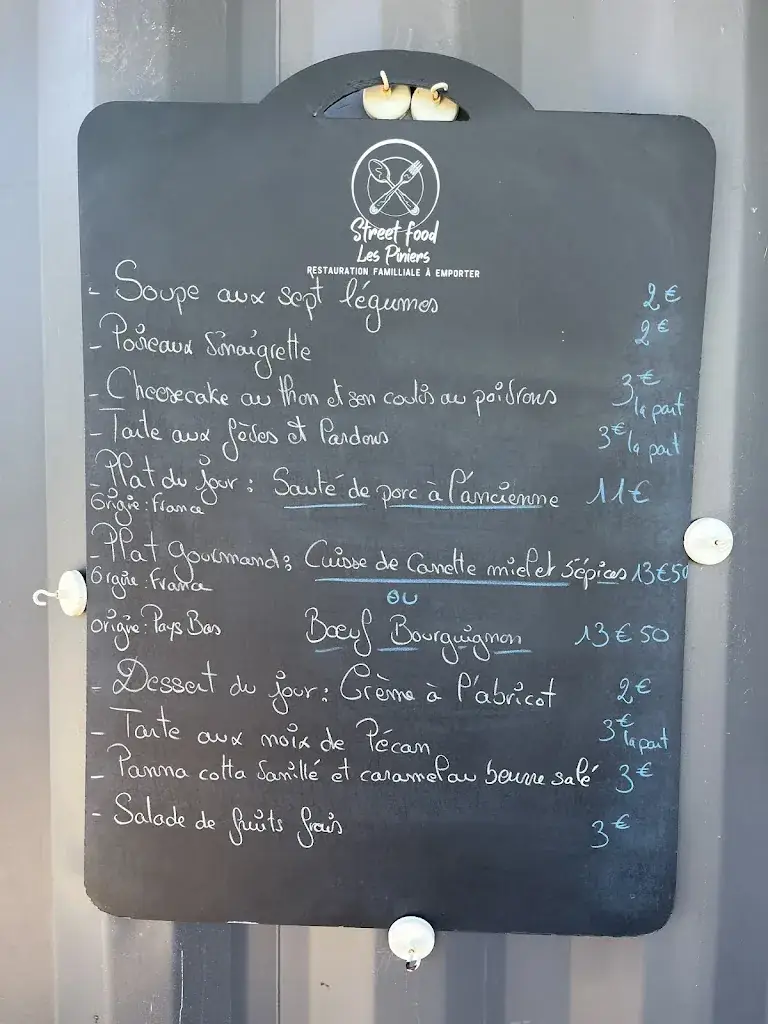 Street food
Les Piniers
RESTAURATION FAMILLIALE À EMPORTER
- Soupe aux sept légumes 2€
- Poireaux Vinaigrette 2€
- Cheesecake au thon et son coulis au poivrons 3€ la part
- Tarte aux fèves et lardons 3€ la part
- Plat du jour : Sauté de porc à l'ancienne 11€
Origie : France
- Plat gourmand : Cuisse de Canette miel et 5 épices 13€50
Origine : France
ou
origine : Pays Bas Bœuf Bourguignon 13€50
- Dessert du jour : Crème à l'abricot 2€
- Tarte aux noix de Pécan 3€ la part
- Panna cotta Vanillé et caramel au beurre salé 3€
- Salade de fruits frais 3€